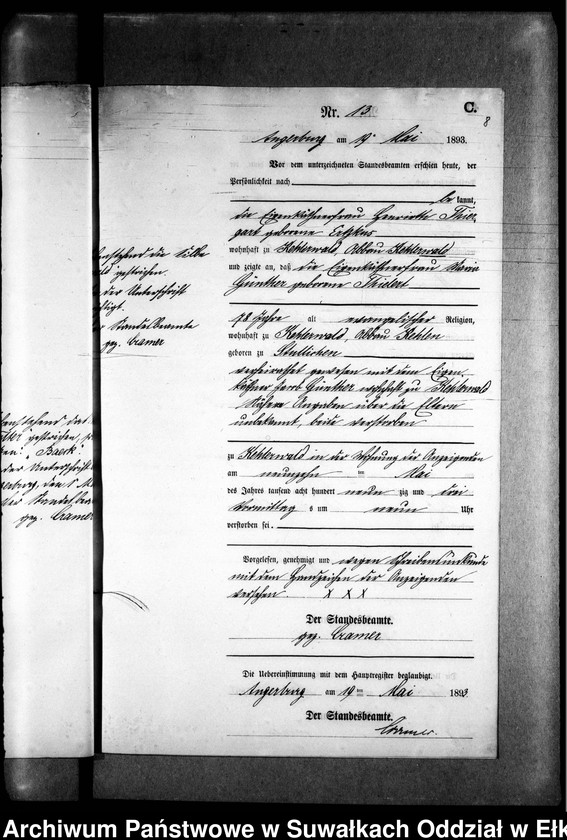 C.
8
Nr. 13
Angerburg am 19. Mai 1893.
Vor dem unterzeichneten Standesbeamten erschien heute, der
Persönlichkeit nach
be kannt,
die Eigenkäthnerfrau Henriette Thier
gart geborene
wohnhaft zu Kehlerwald, Abbau Kehlerwald
und zeigte an, daß die Eigenkäthnerfrau Maria
Günther geborene Thielert
78 Jahre alt evangelischer Religion,
wohnhaft zu Kehlerwald, Abbau Kehlen
geboren zu Stullichen
verheirathet gewesen mit dem Eigen
käthner Jacob Günther wohnhaft zu Kehlerwald
Nähere Angaben über die Eltern
unbekannt, beide verstorben
zu Kehlerwald in der Wohnung der Anzeigenden
am neunzehn ten Mai
des Jahres tausend acht hundert neun zig und drei
Vormittag s um neun Uhr
verstorben sei.
Vorgelesen, genehmigt und wegen Schreibensunkunde
mit dem Handzeichen der Anzeigenden
versehen. X X X
Der Standesbeamte.
gez. Cramer
Die Uebereinstimmung mit dem Hauptregister beglaubigt.
Angerburg am 19 ten Mai 1893
Der Standesbeamte.
Cramer.
die Silbe
gestrichen.
der Unterschrift
Standesbeamte
gez. Cramer
gestrichen,
"Baeck"
der Unterschrift
gez. Cramer
Archiwum Państwowe w Suwałkach Oddział w Ełk